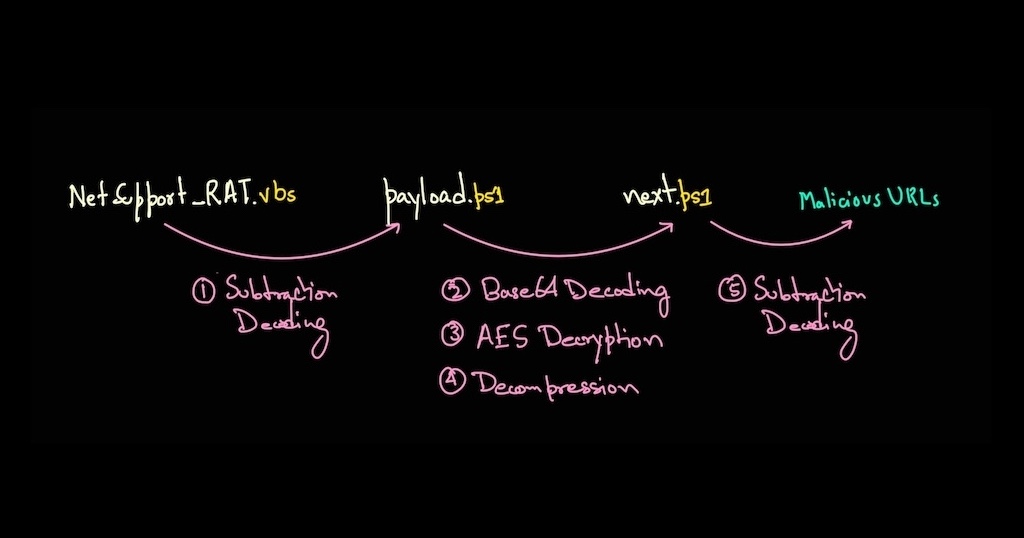 NetSupport_RAT.vbs
payload.ps1
next.ps1
Malicious URLs
① Subtraction
Decoding
② Base64 Decoding
③ AES Decryption
④ Decompression
⑤ Subtraction
Decoding